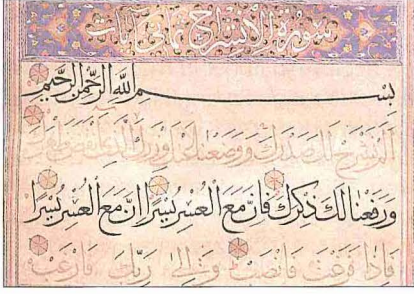 سورة الانشراح ثماني آيات
بِسْمِ اللَّهِ الرَّحْمَنِ الرَّحِيمِ
أَلَمْ نَشْرَحْ لَكَ صَدْرَكَ وَوَضَعْنَا عَنْكَ وِزْرَكَ الَّذِي أَنْقَضَ ظَهْرَكَ
وَرَفَعْنَا لَكَ ذِكْرَكَ فَإِنَّ مَعَ الْعُسْرِ يُسْرًا إِنَّ مَعَ الْعُسْرِ يُسْرًا
فَإِذَا فَرَغْتَ فَانْصَبْ وَإِلَى رَبِّكَ فَارْغَبْ